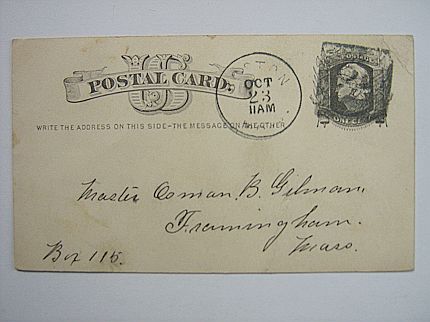 US
POSTAL CARD.
WRITE THE ADDRESS ON THIS SIDE-THE MESSAGE ON THE OTHER
OCT
23
11AM
ONE CENT
Master Osman B. Gilman,
Framingham.
Mass.
Box 115.